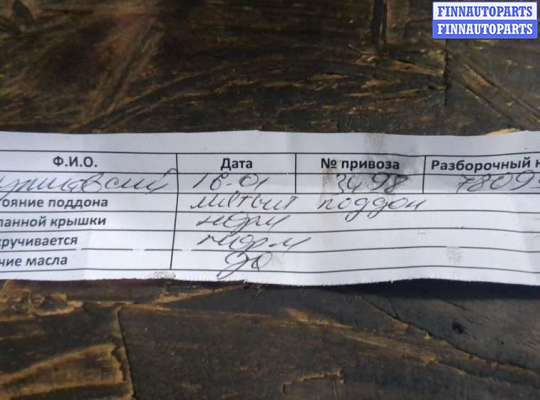 FINNAUTOPARTS
FINNAUTOPARTS
Ф.И.О. Дата № привоза Разборочный н
16-01 3498 7809
тояние поддона мятый поддон
панной крышки норм
кручивается норм
ние масла